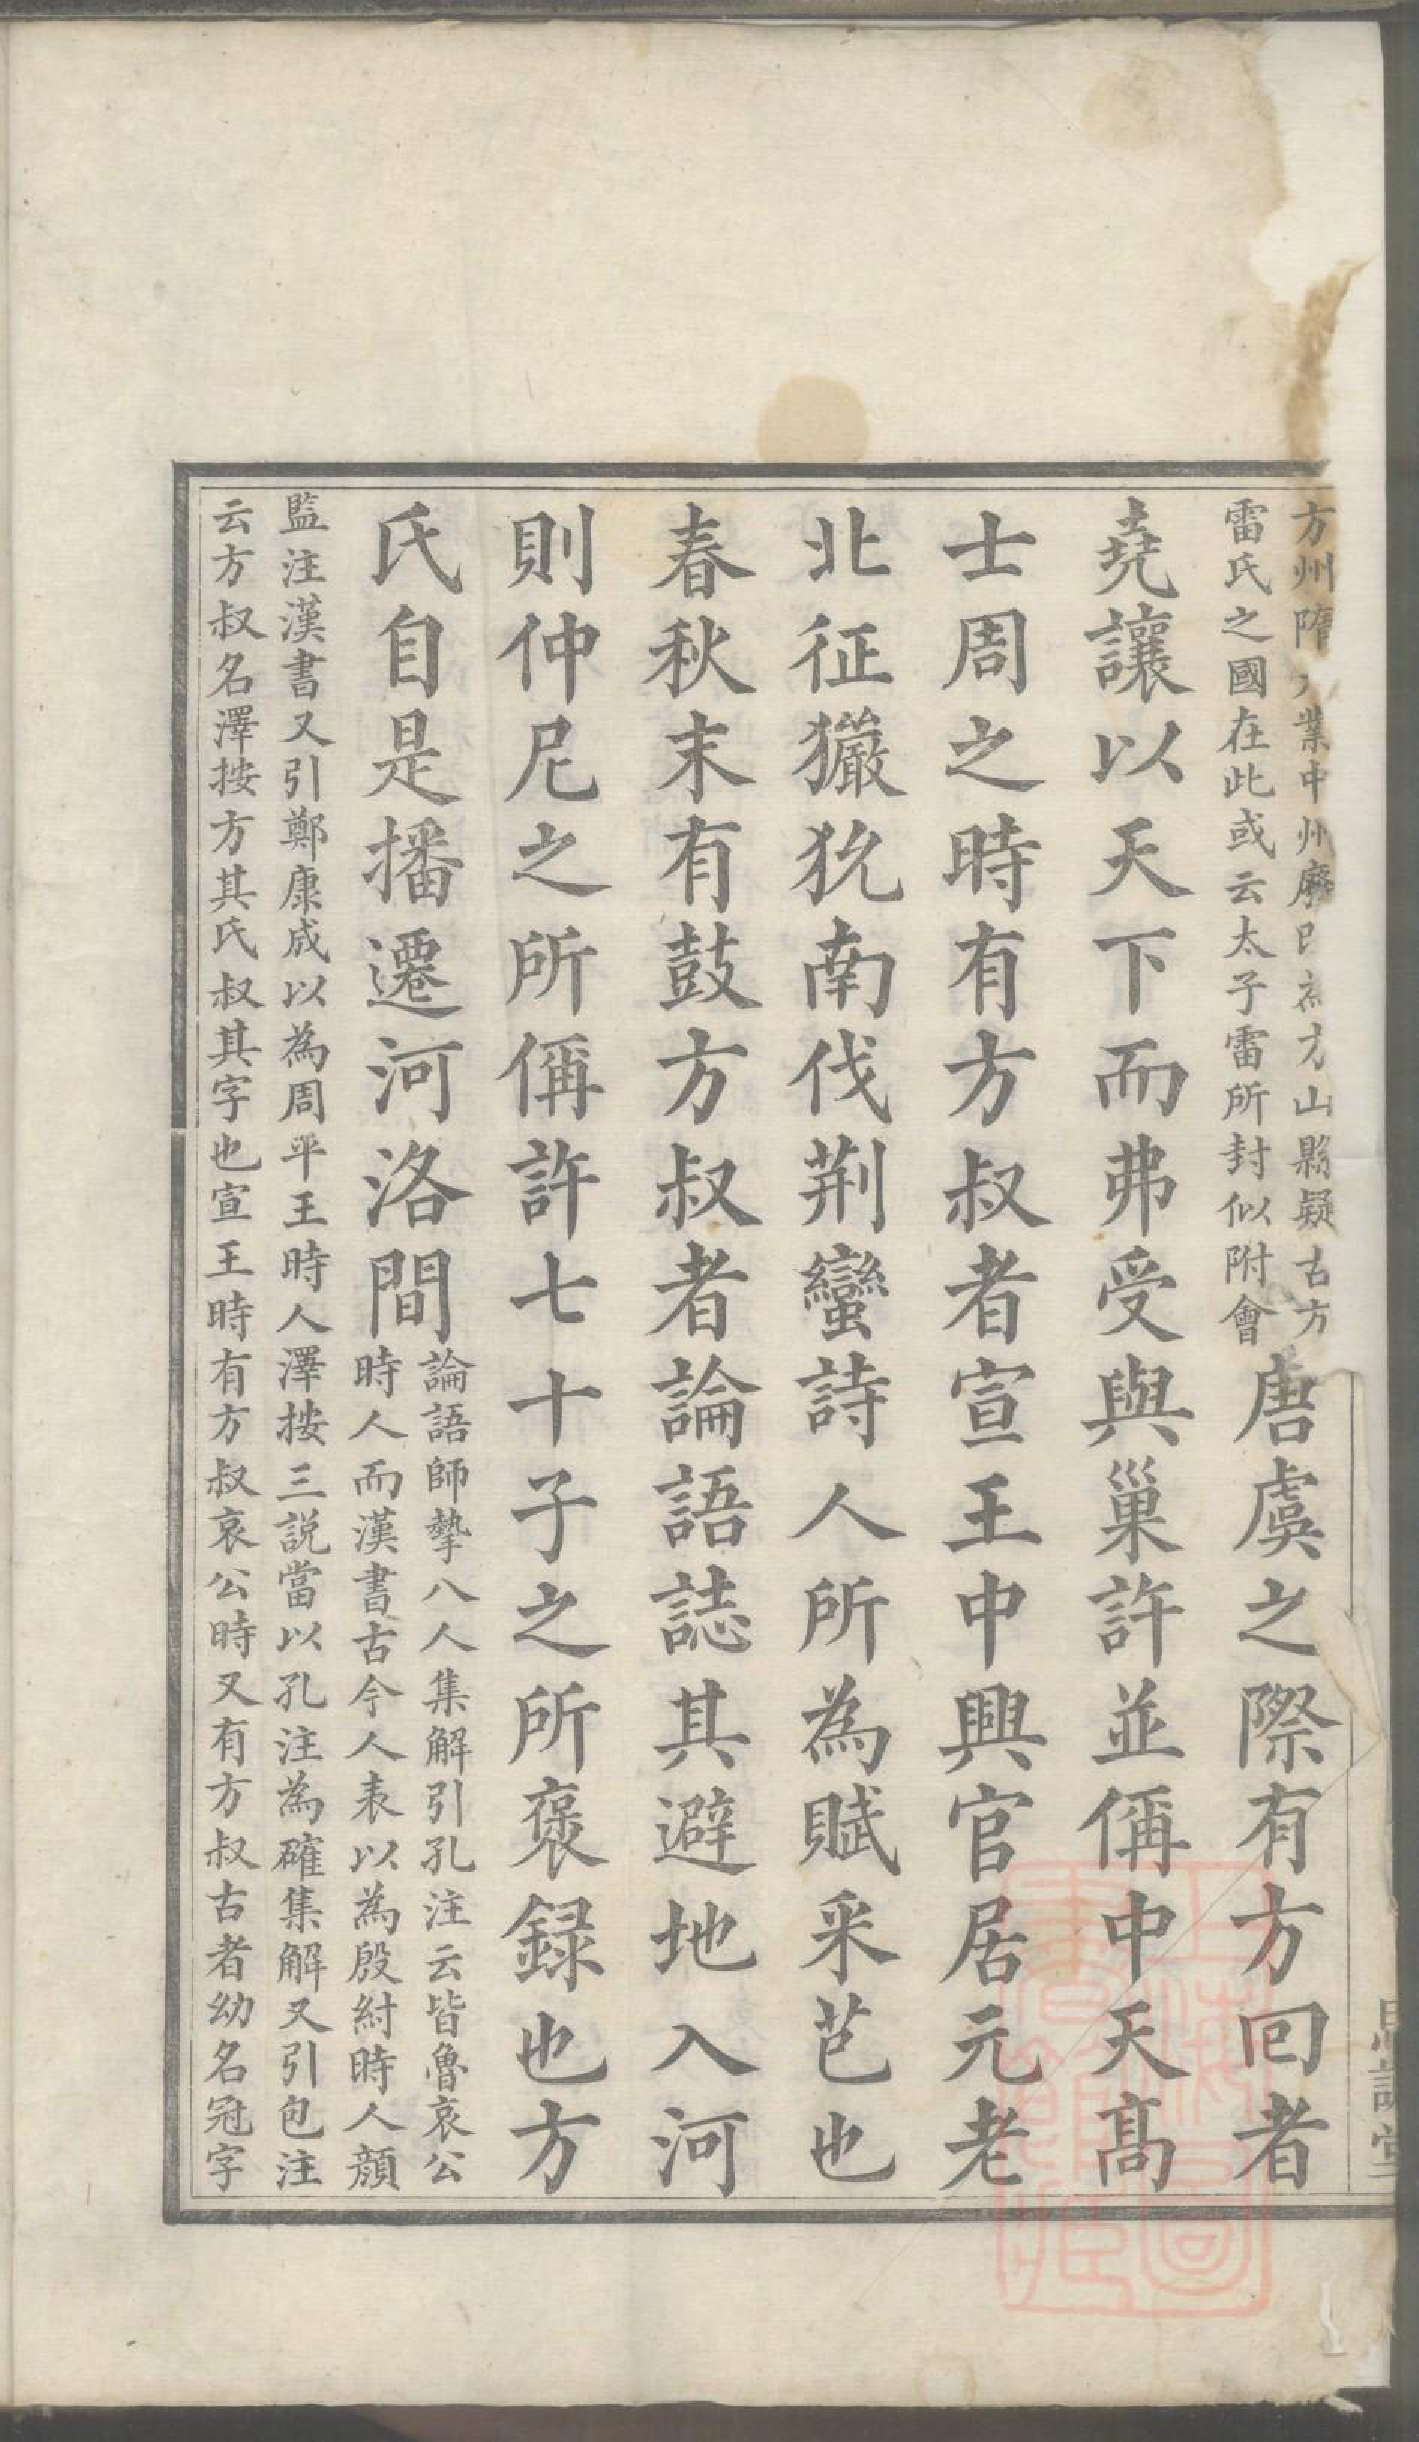 方州隋大業中州廢已為方山縣疑古方
雷氏之國在此或云太子雷所封似附會
唐虞之際有方回者
堯讓以天下而弗受與巢許並稱中天高
士周之時有方叔者宣王中興官居元老
北征玁狁南伐荆蠻詩人所為賦采芑也
春秋末有鼓方叔者論語誌其避地入河
則仲尼之所稱許七十子之所褒録也方
氏自是播遷河洛間
論語師摯八人集解引孔注云皆魯哀公
時人而漢書古今人表以為殷紂時人顔
監注漢書又引鄭康成以為周平王時人澤按三説當以孔注為確集解又引包注
云方叔名澤按方其氏叔其字也宣王時有方叔哀公時又有方叔古者幼名冠字